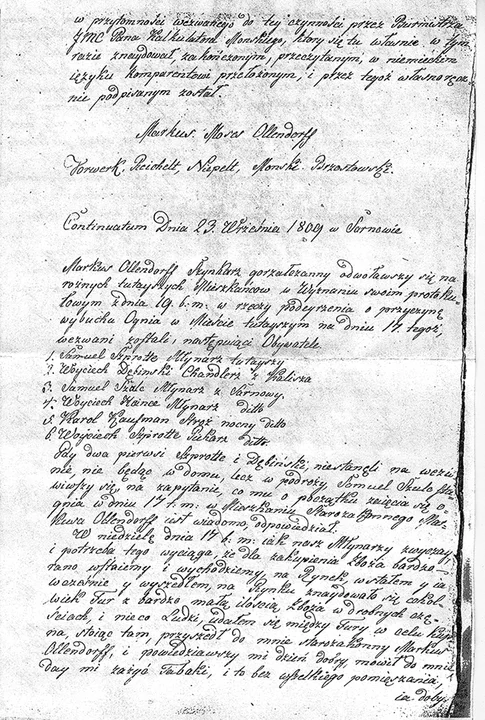 w przytomności wezwanego do tey czynności przez Burmistrza
JMC Pana Kalkulatora Monskiego, ktory się tu własnie w tym
razie znaydował, zakończonym, przeczytanym, w niemieckim
ięzyku komparentowi przełożonym, i przez tegoż własnoręcz-
nie podpisanym został.
Markus Moses Ollendorff
Vorwerk, Reichelt, Niepelt, Monski Brzostowski.
Continuatum Dnia 23. Września 1809 w Sarnowie
Markus Ollendorff Szynkarz gorzałczanny odwoławszy się na
rożnych tutayszych Mieszkańcow, w Wyznaniu swoim protoku-
łowym z dnia 19. b: m: w rzeczy podeyrzenia o przyczynę
wybuchu Ognia w Mieście tutayszym na dniu 17 tegoż,
wezwani zostali, następuiąci Obywatele
1. Samuel Szprotte Młynarz tutayszy
2. Woyciech Dębinski Chandlerz z Kalisza
3. Samuel Szulc Młynarz z Sarnowy.
4. Woyciech Heince Młynarz ditto
5. Karol Kaufman Stroż nocny ditto
6. Woyciech Szprotte Piekarz ditto.
Gdy dwa pierwsi Szprotte i Dębinski, niestanęli na wezwa
nie nie będąc w domu, lecz w podroży, Samuel Szulc sta
wiwszy się, na zapytanie, co mu o początku zaięcia się o-
gnia w dniu 17 t. m: w Mieszkaniu Starozakonnego Mar-
kusa Ollendorff iest wiadomo, odpowiedział.
W niedzielę dnia 17 b: m: iak nasz Młynarzy zwyczay,
i potrzeba tego wyciąga, że dla zakupienia Zboża bardzo
rano wstaiemy i wychodziemy, na Rynek, wstałem y ia
wcześnie y wyszedłem, na Rynku znaydowało się cokol-
wiek Fur z bardzo małą ilością Zboża w drobnych czę-
ściach, i nieco Ludzi, udałem się między Fury w celu kup
na, stoiąc tam, przyszedł do mnie starozakonny Markus
Ollendorff, i powiedziawszy mi dzień dobry, mowił do mnie
day mi zażyć Tabaki, i to bez wszelkiego pomięszania,
ia doby